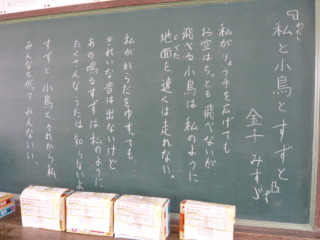 『私と小鳥とすずと』
金子 みすゞ
私がりょう手を広げても
お空はちっとも飛べないが
飛べる小鳥は私のように
地面を速くは走れない。
私がからだをゆすっても、
きれいな音は出ないけど
あの鳴るすずは私のように
たくさんなうたは知らないよ
すずと、小鳥と、それから私、
みんなちがって、みんないい。